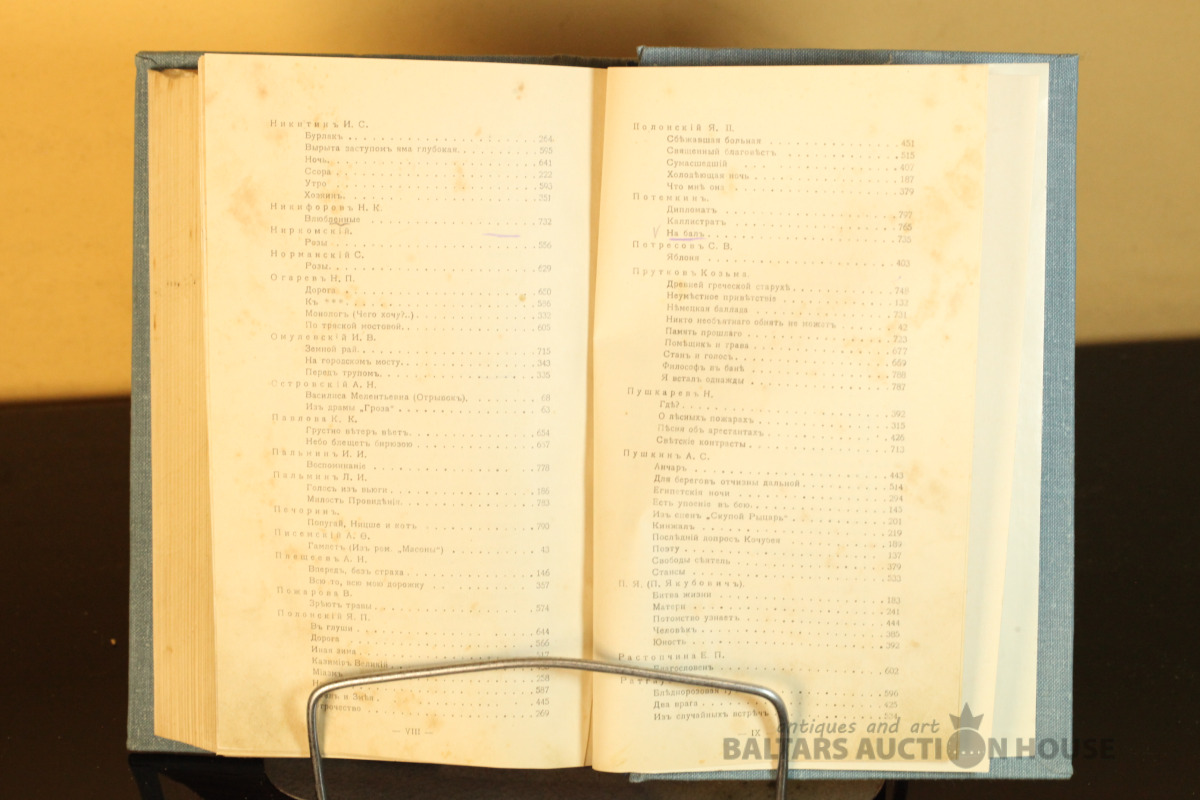 Никитинъ И. С.
Бурлакъ 264
Вырыта заступомъ яма глубокая. 595
Ночь. 641
Ссора 222
Утро 593
Хозяинъ. 251
Никифоровъ Н. К.
Влюбленныя 732
Розы 556
Норманскій С.
Розы. 629
Огаревъ Н. П.
Дорога 620
Къ *** 588
Монологъ (Чего хочу?..) 332
По тряской мостовой. 605
Омулевскій И. В.
Земной рай. 715
На городскомъ мосту. 343
Передъ трупомъ. 335
Островскій А. Н.
Василиса Мелентьевна (Отрывокъ). 68
Изъ драмы „Гроза“ 63
Павлова К. К.
Грустно вѣтеръ вѣетъ. 654
Небо блещетъ бирюзою 657
Пальминъ И. И.
Воспоминаніе 778
Пальминъ Л. И.
Голосъ изъ вьюги 186
Милость Провидѣнія. 783
Печоринъ.
Попугай, Ницше и котъ 790
Писемскій А. Ѳ.
Гамлетъ (Изъ ром. „Масоны“) 43
Плещеевъ А. Н.
Впередъ, безъ страха 146
Всю-то, всю мою дорожку 357
Пожарова В.
Зрѣютъ травы 574
Полонскій Я. П.
Въ глуши 644
Дорога 566
Иная зима 517
Казиміръ Великій
Міазмъ 258
587
и Змѣя 445
269
— VIII —
Полонскій Я. П.
Сбѣжавшая больная 451
Священный благовѣстъ 515
Сумасшедшій 402
Холодѣющая ночь 167
Что мнѣ она 379
Потемкинъ.
Дипломатъ 797
Каллистратъ 765
На балъ 735
Потресовъ С. В.
Яблоня 403
Прутковъ Козьма.
Древней греческой старухѣ 748
Неумѣстное привѣтствіе 122
Нѣмецкая баллада 731
Никто необъятнаго обнять не можетъ 42
Память прошлаго 723
Помѣщикъ и трава 677
Станъ и голосъ. 669
Философъ въ банѣ 788
Я всталъ однажды 787
Пушкаревъ Н.
Гдѣ? 392
О лѣсныхъ пожарахъ 315
Пѣсня объ арестантахъ 426
Свѣтскіе контрасты 713
Пушкинъ А. С.
Анчаръ 443
Для береговъ отчизны дальной 514
Египетскія ночи 294
Есть упоеніе въ бою. 145
Изъ сценъ „Скупой Рыцарь“ 201
Кинжалъ 219
Послѣдній допросъ Кочубея 189
Поэту 137
Свободы сѣятель 379
Стансы 533
П. Я. (П. Якубовичъ).
Битва жизни 183
Матери 241
Потомство узнаетъ 444
Человѣкъ 385
Юность 392
Растопчина Е. П.
Благословенъ 603
Блѣднорозовая 596
Два врага 425
Изъ случайныхъ встрѣчъ 534
— IX
antiques and art
BALTARS AUCTION HOUSE